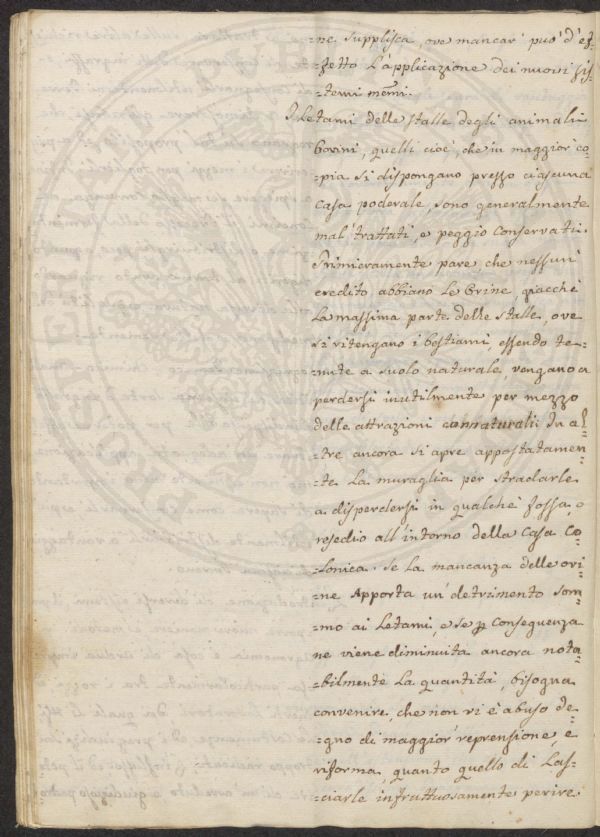 =ne supplisca, ove mancar può d'ef=
=fetto L'applicazione dei nuovi si=
=temi memi.
I Letami delle stalle degli animali
bovini, quelli cioè, che in maggior co=
=pia si dispongano presso ciascuna
casa poderale, sono generalmente
mal trattati, e peggio conservati.
Primieramente pare, che nessun
credito abbiano Le Orine, giacchè
La massima parte delle stalle, ove
si ritengano i bestiami, essendo te=
=nute a suolo naturale, vengano a
perdersi inutilmente per mezzo
delle attrazioni connaturali: In al=
=tre ancora si apre appostatamen=
=te La muraglia per stradarle
a disperdersi in qualche fossa, o
resedio all'intorno della Casa Co=
=lonica. Se La mancanza delle ori=
=ne Apporta un detrimento som=
=mo ai Letami, e se p Conseguenza
ne viene diminuita ancora nota=
=bilmente La quantità, bisogna
convenire, che non vi è abuso de=
=gno di maggior reprensione, e
riforma, quanto quello di Las=
=ciarle infruttuosamente perire